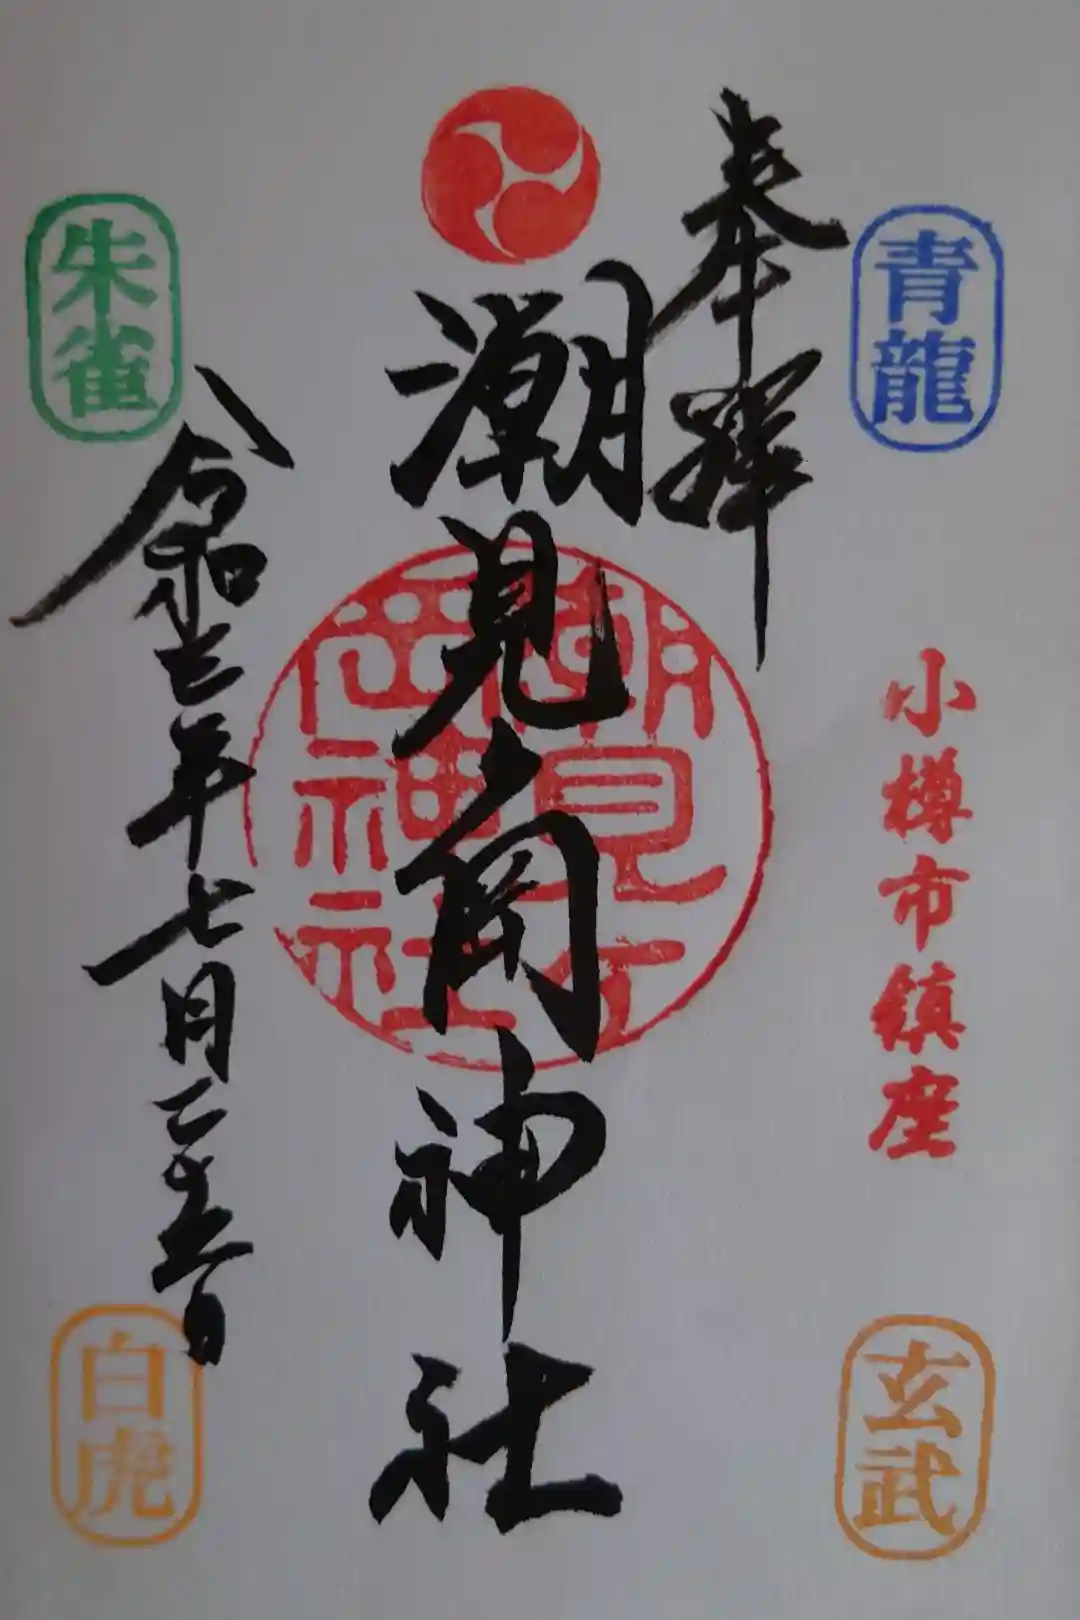 青龍
奉拝
小樽市鎮座
玄武
潮見ヶ岡神社
潮見ヶ
岡神社
朱雀
令和年七月二十五日
白虎